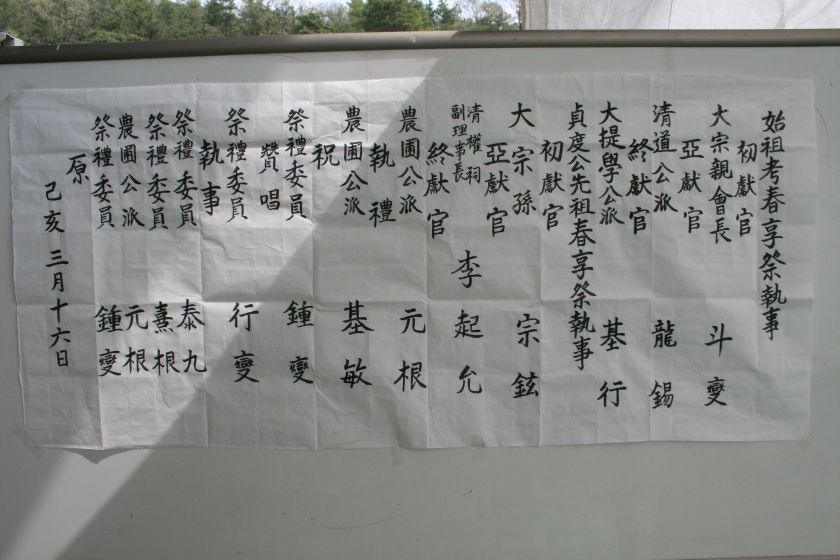 始祖考春享祭執事
初獻官
大宗親會長 斗燮
亞獻官
清道公派 龍錫
終獻官
大提學公派 基行
貞度公先祖春享祭執事
初獻官
大宗孫 宗鉉
亞獻官
清權祠
副理事長 李起允
終獻官
農圃公派 元根
執禮
農圃公派 基敏
祝
祭禮委員 鍾燮
贊唱
祭禮委員 行燮
執事
祭禮委員 泰九
祭禮委員 熹根
農圃公派 元根
祭禮委員 鍾燮
原
己亥 三月十六日